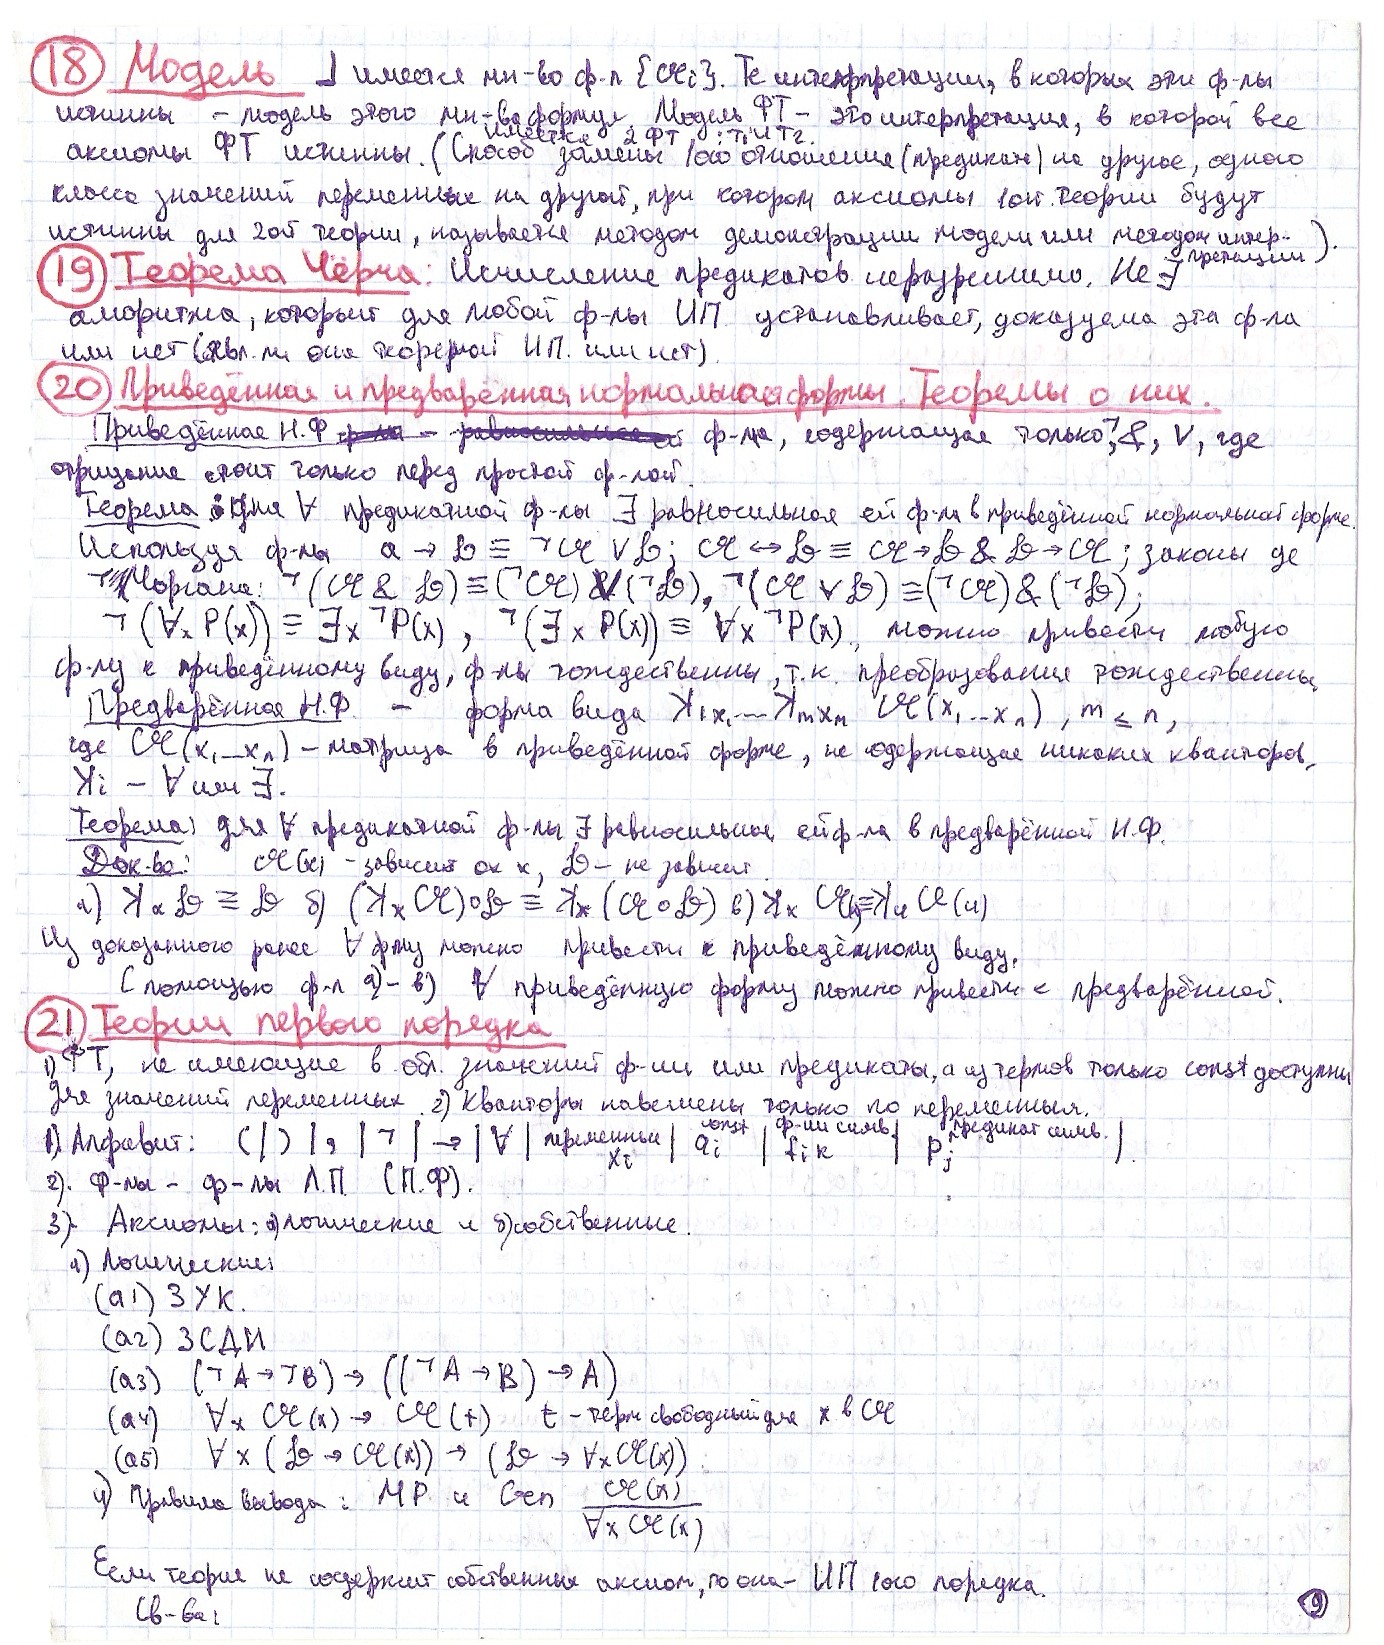 18 Модель ⅃ имеется мн-во ф-л {𝔄i}. Те интерпретации, в которых эти ф-лы
истинны – модель этого мн-ва формул. Модель ФТ – это интерпретация, в которой все
имеется 2 ФТ : T1 и T2.
аксиомы ФТ истинны. (Способ замены 1ого отношения (предикат) на другое, одного
класса значений переменных на другой, при котором аксиомы 1ой теории будут
истинны для 2ой теории, называется методом демонстрации модели или методом интер-
претации).
19 Теорема Чёрча: Исчисление предикатов неразрешимо. Не ∃
алгоритма, который для любой ф-лы ИП устанавливает, доказуема эта ф-ла
или нет (явл. ли она теоремой ИП. или нет).
20 Приведённая и предварённая нормальная формы. Теоремы о них.
Приведённая Н.Ф ф-ла, содержащая только ¬, &, ∨, где
отрицание стоит только перед простой ф-лой.
Теорема: Для ∀ предикатной ф-лы ∃ равносильная ей ф-ла в приведённой нормальной форме.
Используя ф-лы 𝔄 → 𝔅 ≡ ¬𝔄 ∨ 𝔅; 𝔄 ↔ 𝔅 ≡ 𝔄 → 𝔅 & 𝔅 → 𝔄; законы де
Моргана: ¬(𝔄 & 𝔅) ≡ (¬𝔄) ∨ (¬𝔅), ¬(𝔄 ∨ 𝔅) ≡ (¬𝔄) & (¬𝔅);
¬(∀x P(x)) ≡ ∃x ¬P(x), ¬(∃x P(x)) ≡ ∀x ¬P(x), можно привести любую
ф-лу к приведённому виду, ф-лы тождественны, т.к. преобразования тождественны.
Предварённая Н.Ф. – форма вида K1x1...Kmxm 𝔄(x1...xn), m ≤ n,
где 𝔄(x1...xn) – матрица в приведённой форме, не содержащая никаких кванторов,
Ki – ∀ или ∃.
Теорема: для ∀ предикатной ф-лы ∃ равносильная ей ф-ла в предварённой Н.Ф.
Док-во: 𝔄(x) – зависит от x, 𝔅 – не зависит.
а) Kx 𝔅 ≡ 𝔅 б) (Kx 𝔄)∘𝔅 ≡ Kx (𝔄∘𝔅) в) Kx 𝔄(x) ≡ Ku 𝔄(u)
Из доказанного ранее ∀ ф-лу можно привести к приведённому виду.
С помощью ф-л а) – в) ∀ приведённую форму можно привести к предварённой.
21 Теории первого порядка
1) ФТ, не имеющие в обл. значений ф-ии или предикаты, а из термов только const доступны
для значений переменных. 2) Кванторы навешены только по переменным.
1) Алфавит: ( | ) | , | ¬ | → | ∀ | переменные xi | const ai | ф-ии симв. fik | предикат симв. Pj |.
2). Ф-лы – ф-лы Л.П. (П.Ф).
3) Аксиомы: а) логические и б) собственные.
а) Логические:
(a1) ЗУК.
(a2) ЗСДИ
(a3) (¬A → ¬B) → ((¬A → B) → A)
(a4) ∀x 𝔄(x) → 𝔄(t) t – терм свободный для x в 𝔄
(a5) ∀x (𝔅 → 𝔄(x)) → (𝔅 → ∀x 𝔄(x)).
4) Правила вывода: MP и Gen 𝔄(x) / ∀x 𝔄(x)
Если теория не содержит собственных аксиом, то она – ИП 1ого порядка.
Св-ва:
9